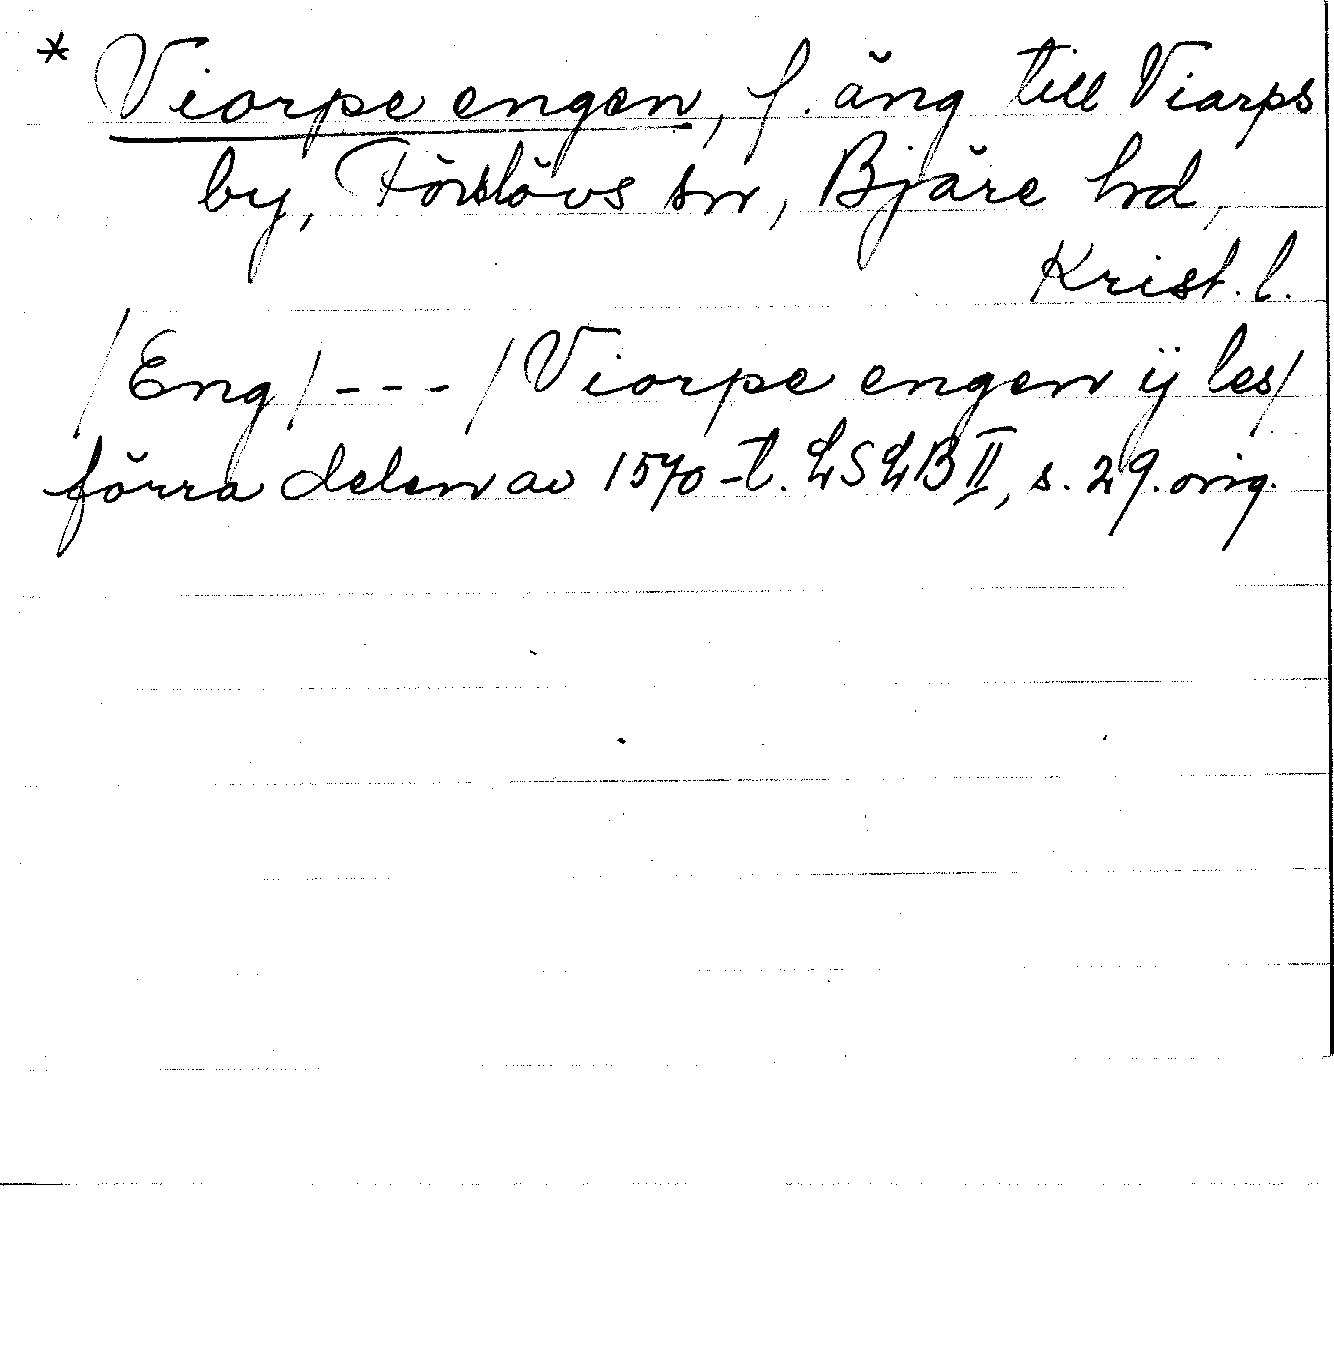 * Viorpe engen, f. äng till Viarps
by, Förslövs sn, Bjäre hd,
Krist. l.
/Eng/ --- /Viorpe engen ij les/
förra delen av 1570-t. LSLB II, s. 29. orig.